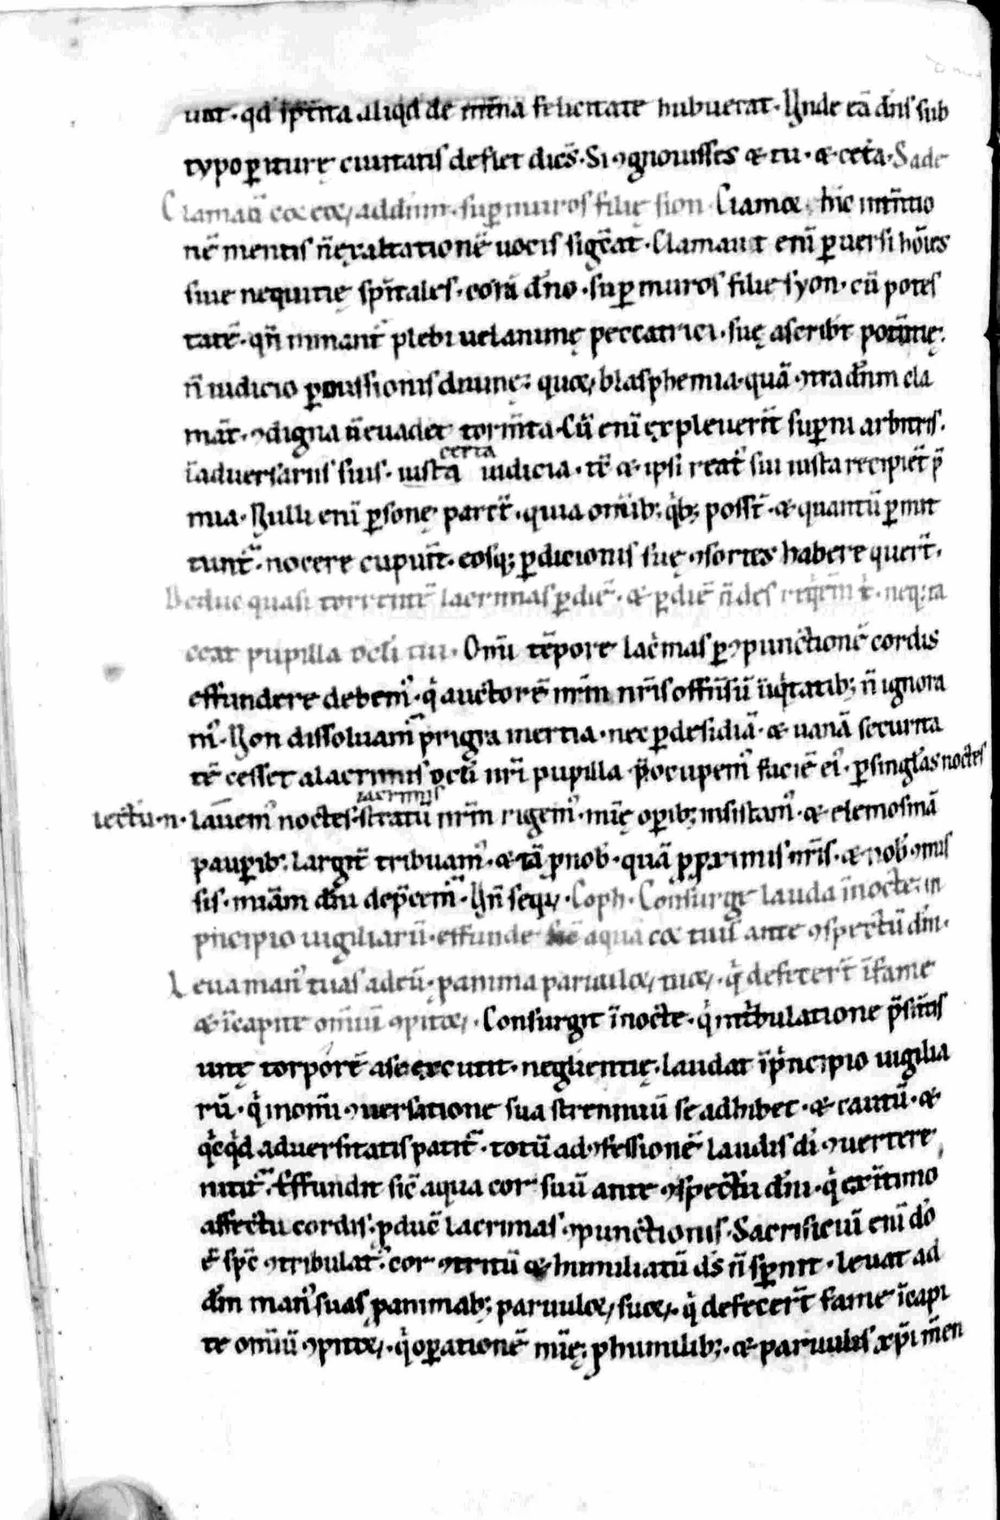 uat · qd sp̄rita aliqd de et̄na felicitate habuerat · Unde eā dn̄s sub
typo p̱iturę ciuitatis deflet dicēs · Si ꝯgnouisses & tu · & cet̄a · Sade
Clamauit̄ cor eoꝝ ad dn̄m · sup̱ muros filię sion · Clamor hic int̄tio
nē mentis n̄ exaltationē uocis siḡcat · Clamant enī p̱uersi hoīes
siue nequitię sp̄ritales · corā dn̄o · sup̱ muros filie syon · cū potes
tatē · qn̄ minant̄ plebi uel animę peccatrici · suę ascribt̄ potentię ·
n̄ iudicio p̱missionis diuinę · quoꝝ blasphemia · quā ꝯtra dn̄m cla
mat̄ · ꝯdigna n̄ euadet torm̄ta · Cū enī expleuerīt sup̱ni arbitris ·
ī aduersariis suis · iusta certa iudicia · tc̄ & ipsi reat᷒ sui iusta recipiet̄ p̄
mia · Nulli enī p̱sonę parct̄ · quia om̄ib; qb; posst̄ · & quantū p̱mit
tunt᷒ · nocere cupiūt · eosq; p̱dicionis suę ꝯsortes habere querт̄ ·
Deduc quasi torrentē lacrimas p̱ diē · & p̱ noctē n̄ des reqēm t · neq; ta
ceat pupilla oculi tui · Om̄i tēpore lac̄mas p̱ ꝯpunctionē cordis
effundere debem᷒ · q̇ auctorē nr̄m nr̄is offensū iniq̇tatib; n̄ ignora
m᷒ · Non dissoluam᷒ pigra inertia · nec p̱ desidiā · & uanā securita
tē cesset a lacrimis oculi nr̄i pupilla · p̄ocupem᷒ faciē ei᷒ · p̱ singlas noctes
lectū · n · lauem᷒ noctes · stratū lacrimis nr̄m rigem᷒ · mię op̱ib; insistam᷒ · & elemosinā
paup̱ib᷒ · largit̄ tribuam᷒ · & tā p̱ nob᷒ · quā p̱ p̱ximis nr̄is · & nob᷒ ꝯmis
sis · miam dn̄i dep̄cem᷒ · Un̄ seq; · Coph · Consurge lauda ī nocte · in
principio uigiliarū · effunde sic̄ aquā cor tuū ante ꝯspectū dn̄i ·
Leua man᷒ tuas ad eū · p̱ anima paruuloꝝ tuoꝝ · q̇ defecert̄ ī fame
& ī capite om̄iū ꝯpitoꝝ · Consurgit ī nocte · q̇ ī t̄bulatione p̄sentis
uitę torporē a se excutit · neglientię · laudat ī p̱ncipio uigilia
rū · q̇ in om̄i ꝯuersatione sua strenuiū se adhibet · & cautū · &
q̇cq̇d aduersitatis patit᷒ · totū ad ꝯfessionē laudis dī ꝯuertere
nitit᷒ · Effundit sic̄ aqua cor suū ante ꝯspectū dn̄i · q̇ ex īntimo
affectu cordis · p̱ducc̄ lacrimas ꝯpunctionis · Sacrificiuī enī dō
ē sp̄c ꝯtribulat᷒ · cor ꝯtritū & humiliatū dš n̄ sp̱nit · Leuat ad
dn̄m man᷒ suas p̱ animab; paruuloꝝ suoꝝ · q̇ defecert̄ fame ī capi
te om̄iū ꝯpitoꝝ · q̇ op̱ationē mię · p̱ humilib; · & paruulis xp̄i m̄en